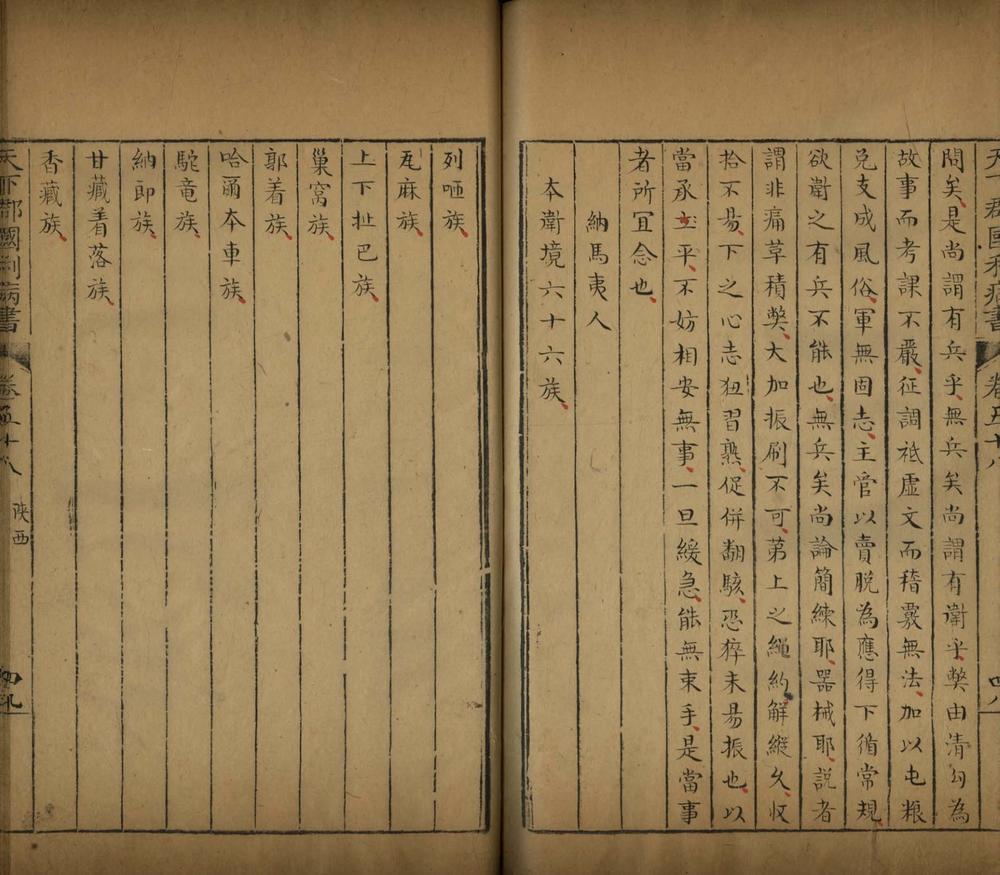 天下郡國利病書 卷五十八 四八
問矣是尚謂有兵乎無兵矣尚謂有衛乎獘由清勾為
故事而考課不嚴征調祗虛文而稽覈無法加以屯粮
兌支成風俗軍無固志主管以賣脫為應得下循常規
欲衛之有兵不能也無兵矣尚論簡練耶器械耶說者
謂非痛草積獘大加振刷不可第上之繩約解縱久收
拾不易下之心志狃習熟促併翻駭恐猝未易振也以
當承平不妨相安無事一旦緩急能無束手是當事
者所冝念也
納馬夷人
本衛境六十六族
列咂族
瓦麻族
上下扯巴族
巢窩族
郭着族
哈爾本車族
駝竜族
納即族
甘藏着落族
香藏族
天下郡國利病書 卷五十八 陝西 四九